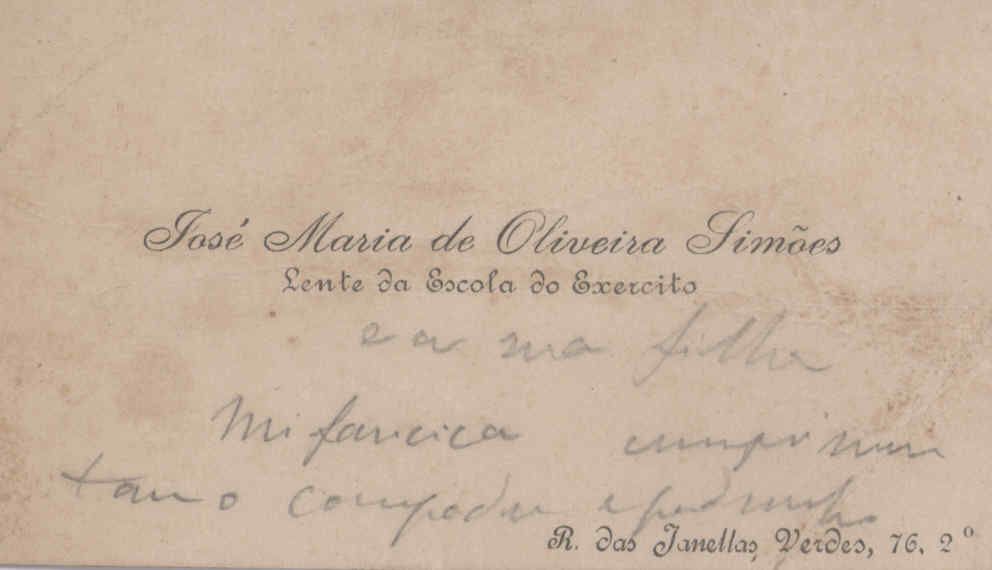 José Maria de Oliveira Simões
Lente da Escola do Exercito
e a sua filha
cumprimen
tam o compadre e padrinho
R. das Janellas Verdes, 76, 2º